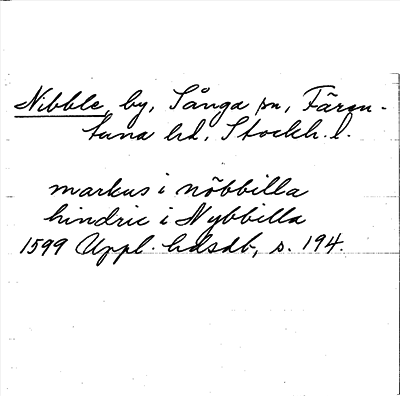 Nibble, by, Sånga sn, Fären-
tuna hd, Stockh. l.
markus i nöbbilla
hindric i Nybbilla
1599 Uppl. hdsdb, s. 194.